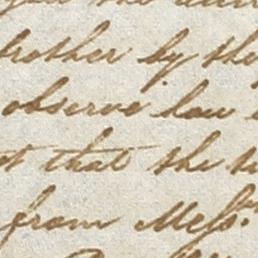 you the
brother by the
observe how
that the
from Mess.rs